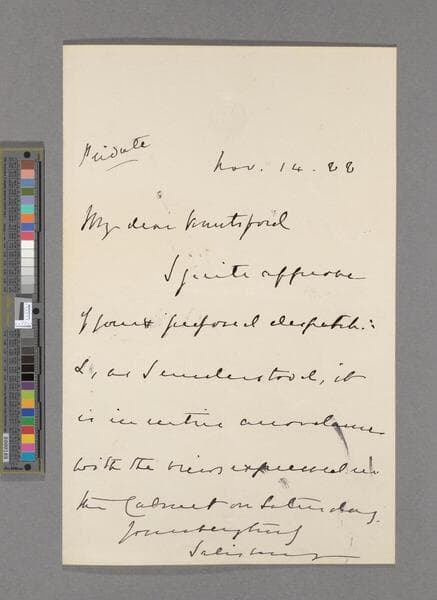 Private
Nov. 14. 88
My dear Knutsford
I quite approve
of your proposed despatch:
&, as I understood, it
is in entire accordance
with the views expressed in
the Cabinet on Saturday.
Yours very truly
Salisbury